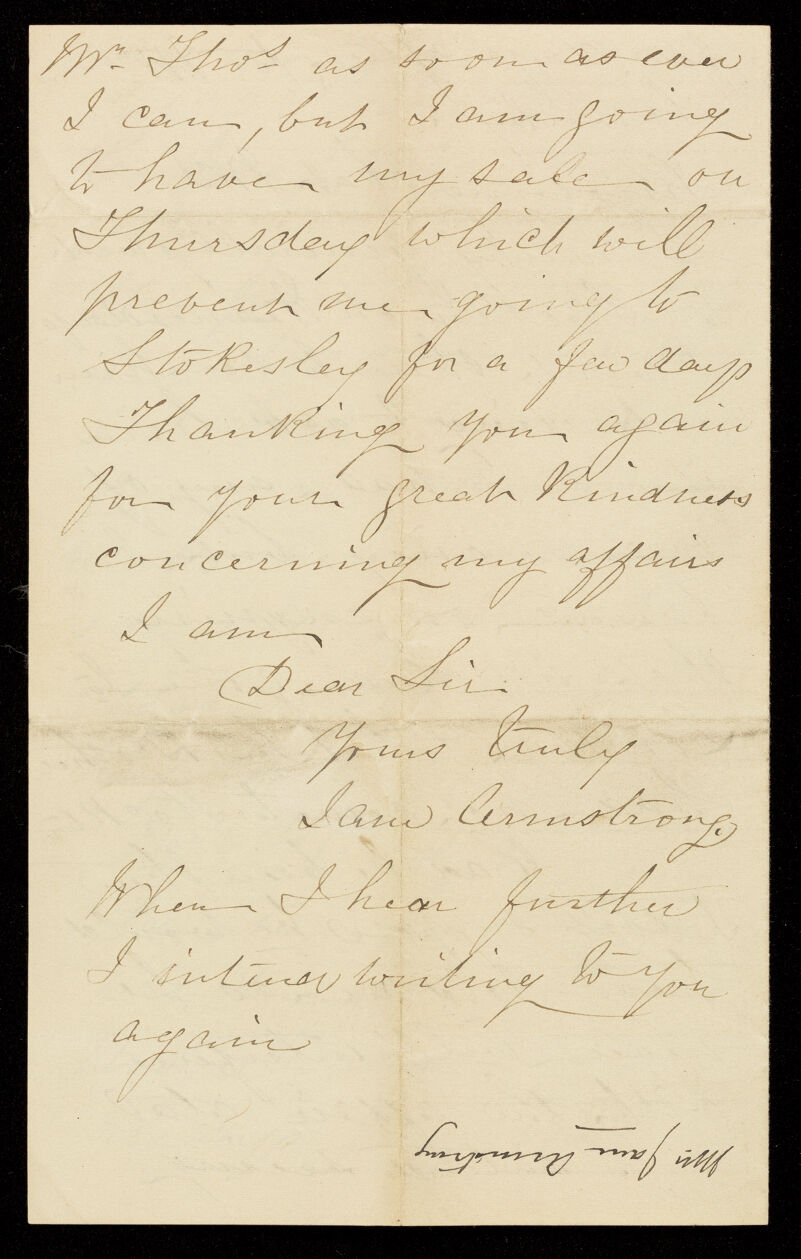 Mr. Thos as soon as ever
I can, but I am going
to have my sale on
Thursday which will
prevent me going to
Stokesley for a few days
Thanking you again
for your great kindness
concerning my affairs
I am
Dear Sir
Yours truly
Jane Armstrong.
When I hear further
I intend writing to you
again
Mrs Jane Armstrong